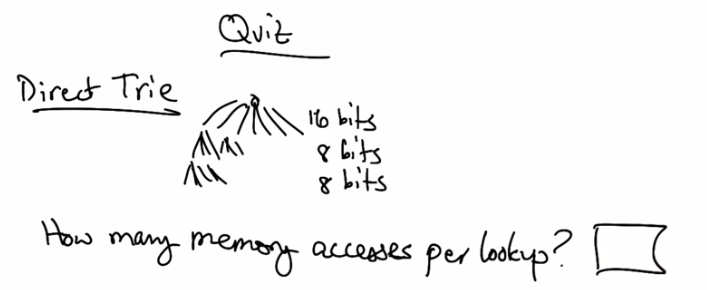 Quiz
Direct Trie
16 bits
8 bits
8 bits
How many memory accesses per lookup?